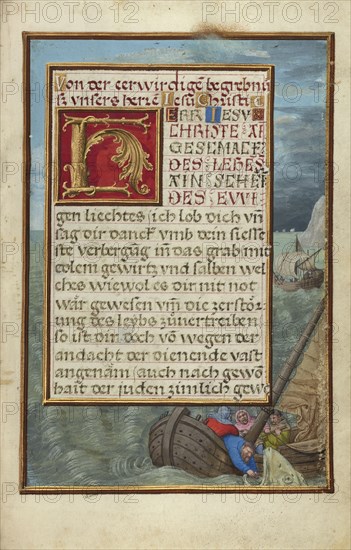 Von der eerwirdigē begrebnu
ß unsers herrē Jesu Christi
HERR IESV
CHRISTE AI
GESCHMACK
DES LEBES
AIN SCHEI
DES EWI
gen liechtes (ich lob dich vn̄
sag dir danck vmb dein siesse
ste verbergūg in das grab mit
edlem gewirtz vnd salben wel
ches wiewol es dir nit not
wår gewesen vm̄ die zerstör
ung des leybs zuuertreiben
so ist dir doch vō wegen der
andacht der dienende vast
angenām (auch nach gewō
hait der juden zimlich gewe
PHOTO12